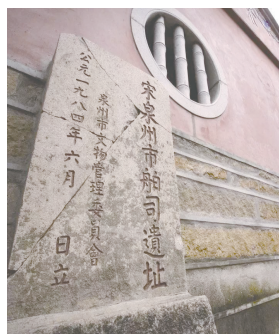 宋泉州市舶司遺址
泉州市文物管理委員會
公元一九八四年六月　日立